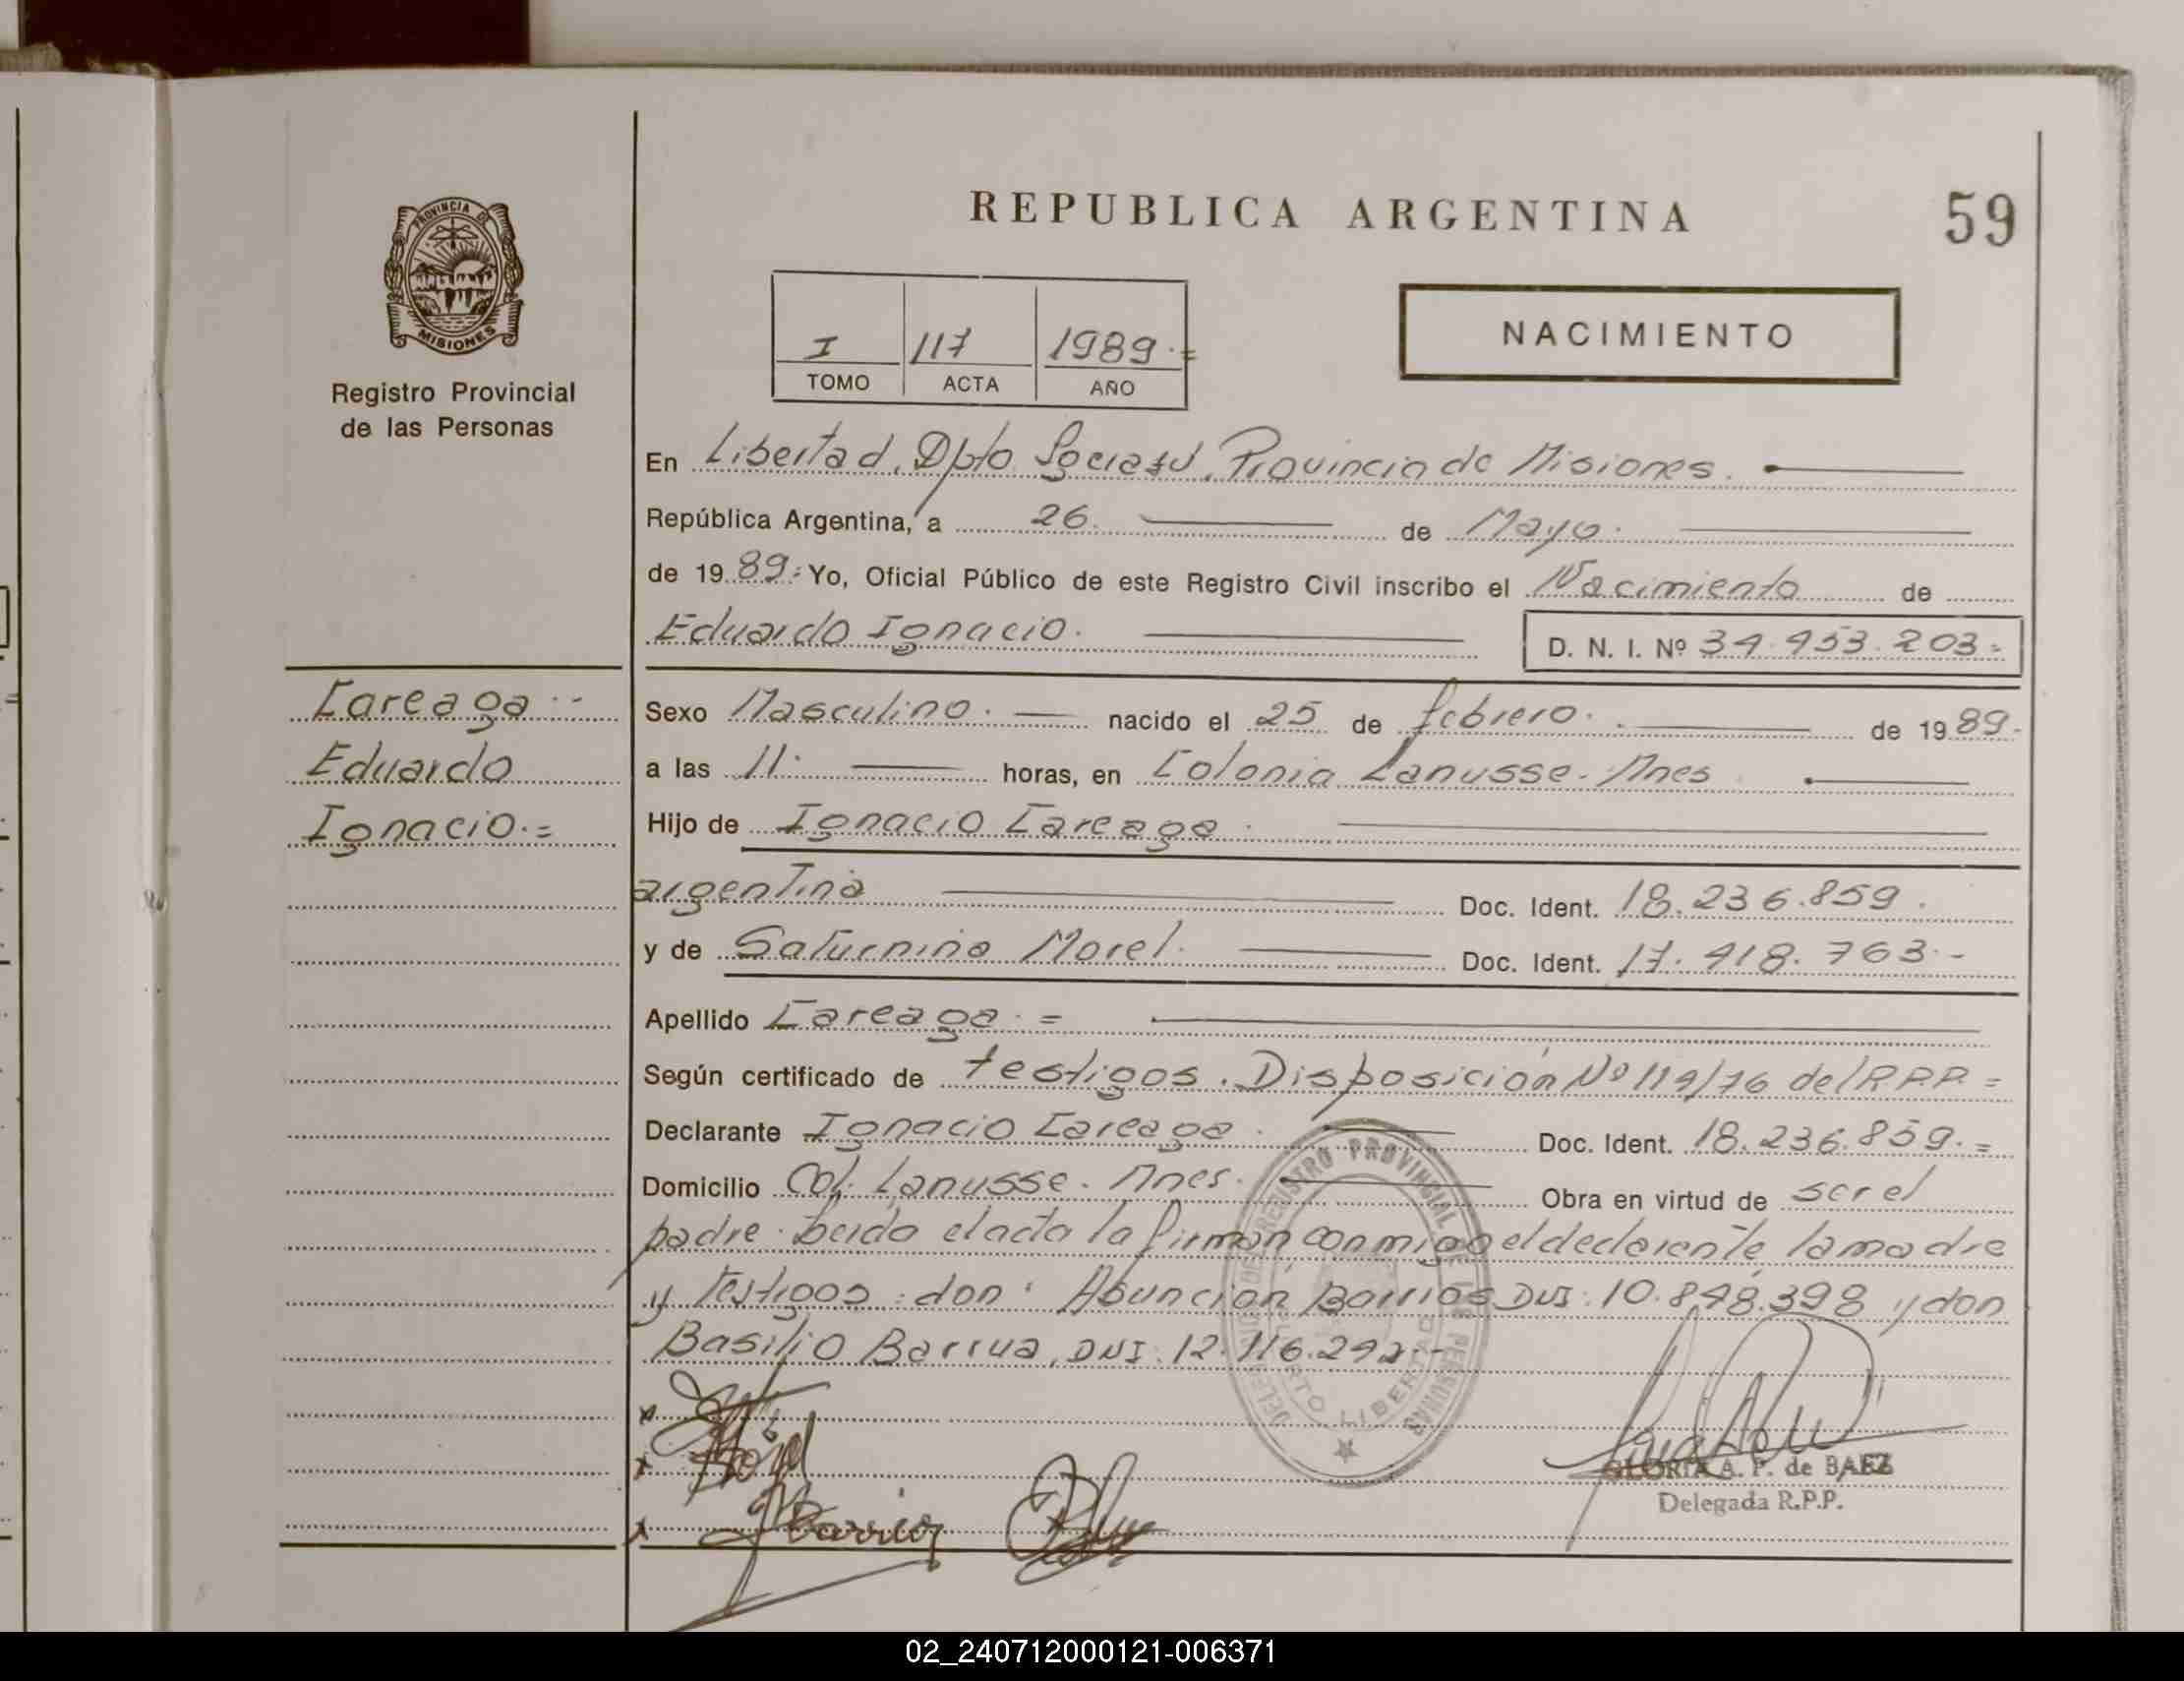 REPUBLICA ARGENTINA
59
PROVINCIA DE
MISIONES
Registro Provincial
de las Personas
I 117 1989.=
TOMO ACTA AÑO
NACIMIENTO
En Libertad, Dpto Iguazú, Provincia de Misiones.
República Argentina, a 26. de Mayo.
de 1989.= Yo, Oficial Público de este Registro Civil inscribo el Nacimiento de
Eduardo Ignacio. D. N. I. Nº 34.453.203=
Careaga
Eduardo
Ignacio.=
Sexo Masculino. nacido el 25 de febrero. de 1989.
a las 11. horas, en Colonia Lanusse. Mnes
Hijo de Ignacio Careaga
argentina Doc. Ident. 18.236.859.
y de Saturnina Morel. Doc. Ident. 17.418.763.-
Apellido Careaga.=
Según certificado de testigos. Disposición Nº 119/76 del R.P.P.=
Declarante Ignacio Careaga. Doc. Ident. 18.236.859.=
Domicilio Col. Lanusse. Mnes. Obra en virtud de ser el
padre. Leida el acta la firman conmigo el declarante, la madre
y testigos: don: Asunción Barrios DNI: 10.848.398 y don
Basilio Barrua, DNI. 12.116.292.-
DELEG REGISTRO PROVINCIAL DE LAS PERSONAS
PTO LIBERTAD
GLORIA A. P. de BAEZ
Delegada R.P.P.
02_240712000121-006371